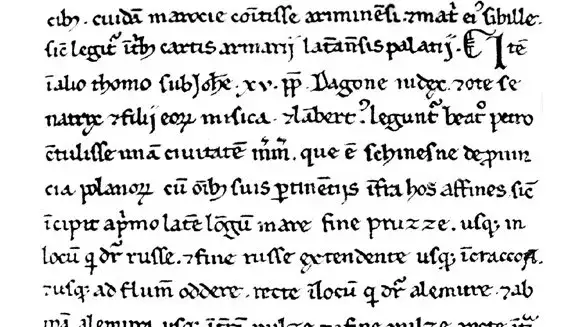 cib⁊. cuidā marocie cōitisse ariminēsi. ⁊ mat̄ ei⁹ sibille.
sic̄ legit͛ ī t̄b⁊ cartis armarij lat̄an̄sis palatij. Itē
ī alio thomo sub Joh̄e . xv . pp̄ . Dagone iudex . ⁊ ote se
natrix ⁊ filij eoꝝ misica . ⁊ lābert⁹. legunt͛ beat̊ petro
c̄tulisse unā ciuitatē īīm̄. que ē schinesne de ꝓuin
cia polanoꝝ cū oīb⁊ suis ꝑtinētijs īfra hos affines sic̄
īcipit a pͥmo lat̄e lōgū mare fine pruzze. usq⁊ in
locū q̇ dr̄ russe. ⁊ fine russe extendente usq⁊ ī craccoa.
⁊ usq⁊ ad flum̄ oddere. recte ī locū q̇ dr̄ alemure. ⁊ ab